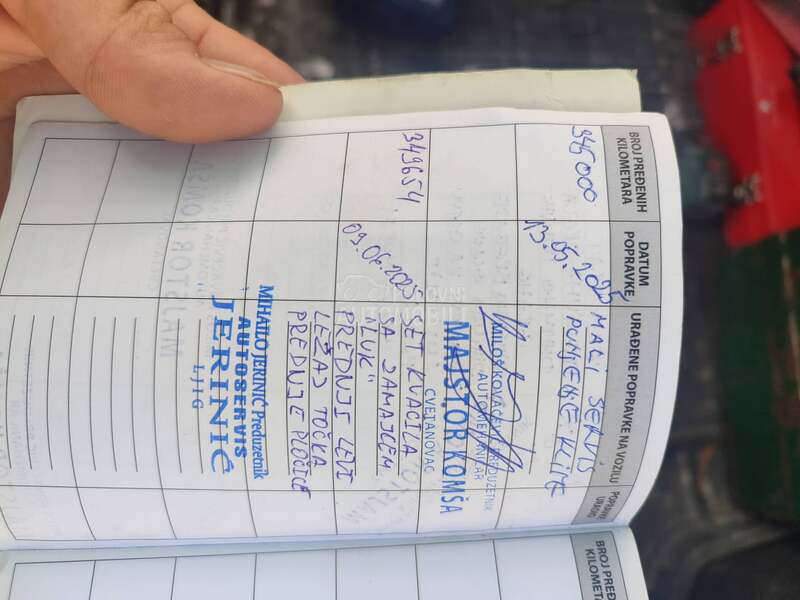 BROJ PREĐENIH KILOMETARA
DATUM POPRAVKE
URAĐENE POPRAVKE NA VOZILU
POPRAVKE
345000
13.05.2025
MALI SERVIS
PUNJENJE KLIME
AUTOMEHANIČAR
MAJSTOR KOMŠA
CVETANOVAC
349654
03.06.2025
SET KVAČILA
SA ZAMAJCEM
"LUK"
PREDNJI LEVI
LEŽAJ TOČKA
PREDNJE PLOČICE
MIHAILO JERINIĆ Preduzetnik
AUTOSERVIS
JERINIĆ
LJIG
BROJ PREĐ
KILOMETA